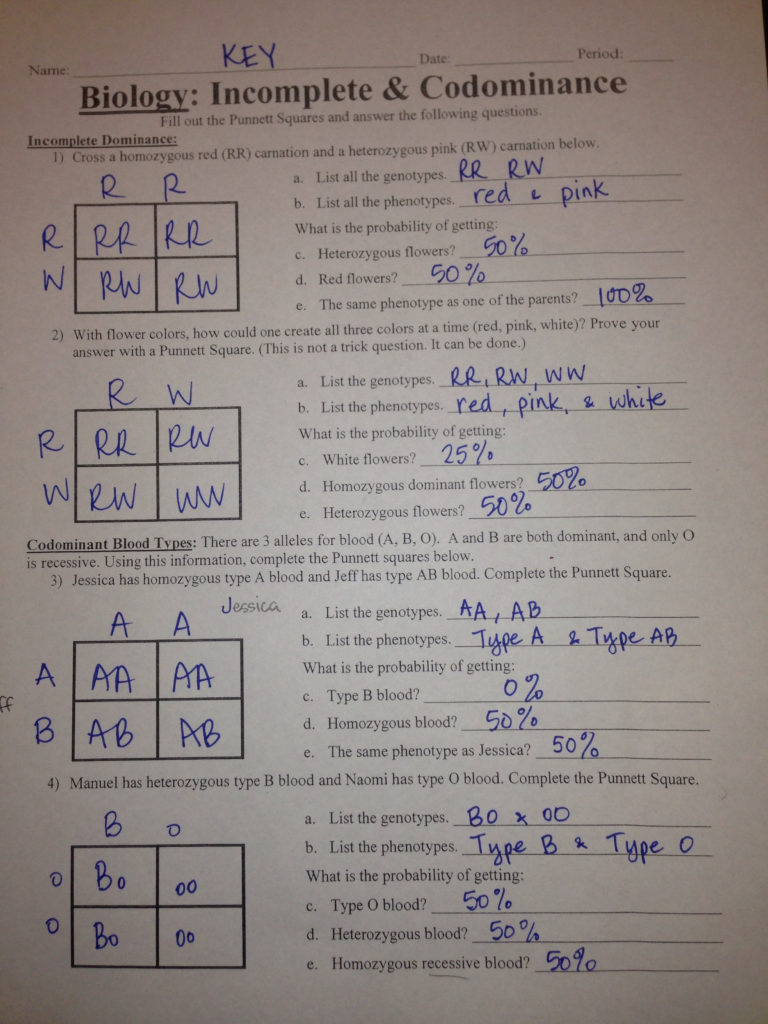 Name: KEY Date: Period:
Biology: Incomplete & Codominance
Fill out the Punnett Squares and answer the following questions.
Incomplete Dominance:
1) Cross a homozygous red (RR) carnation and a heterozygous pink (RW) carnation below.
R R
R RR RR
W RW RW
a. List all the genotypes. RR RW
b. List all the phenotypes. red & pink
What is the probability of getting:
c. Heterozygous flowers? 50%
d. Red flowers? 50%
e. The same phenotype as one of the parents? 100%
2) With flower colors, how could one create all three colors at a time (red, pink, white)? Prove your
answer with a Punnett Square. (This is not a trick question. It can be done.)
R W
R RR RW
W RW WW
a. List the genotypes. RR, RW, WW
b. List the phenotypes. red, pink, & white
What is the probability of getting:
c. White flowers? 25%
d. Homozygous dominant flowers? 50%
e. Heterozygous flowers? 50%
Codominant Blood Types: There are 3 alleles for blood (A, B, O). A and B are both dominant, and only O
is recessive. Using this information, complete the Punnett squares below.
3) Jessica has homozygous type A blood and Jeff has type AB blood. Complete the Punnett Square.
Jessica
A A
A AA AA
ff
B AB AB
a. List the genotypes. AA, AB
b. List the phenotypes. Type A & Type AB
What is the probability of getting:
c. Type B blood? 0%
d. Homozygous blood? 50%
e. The same phenotype as Jessica? 50%
4) Manuel has heterozygous type B blood and Naomi has type O blood. Complete the Punnett Square.
B o
o Bo oo
o Bo oo
a. List the genotypes. BO x OO
b. List the phenotypes. Type B & Type O
What is the probability of getting:
c. Type O blood? 50%
d. Heterozygous blood? 50%
e. Homozygous recessive blood? 50%